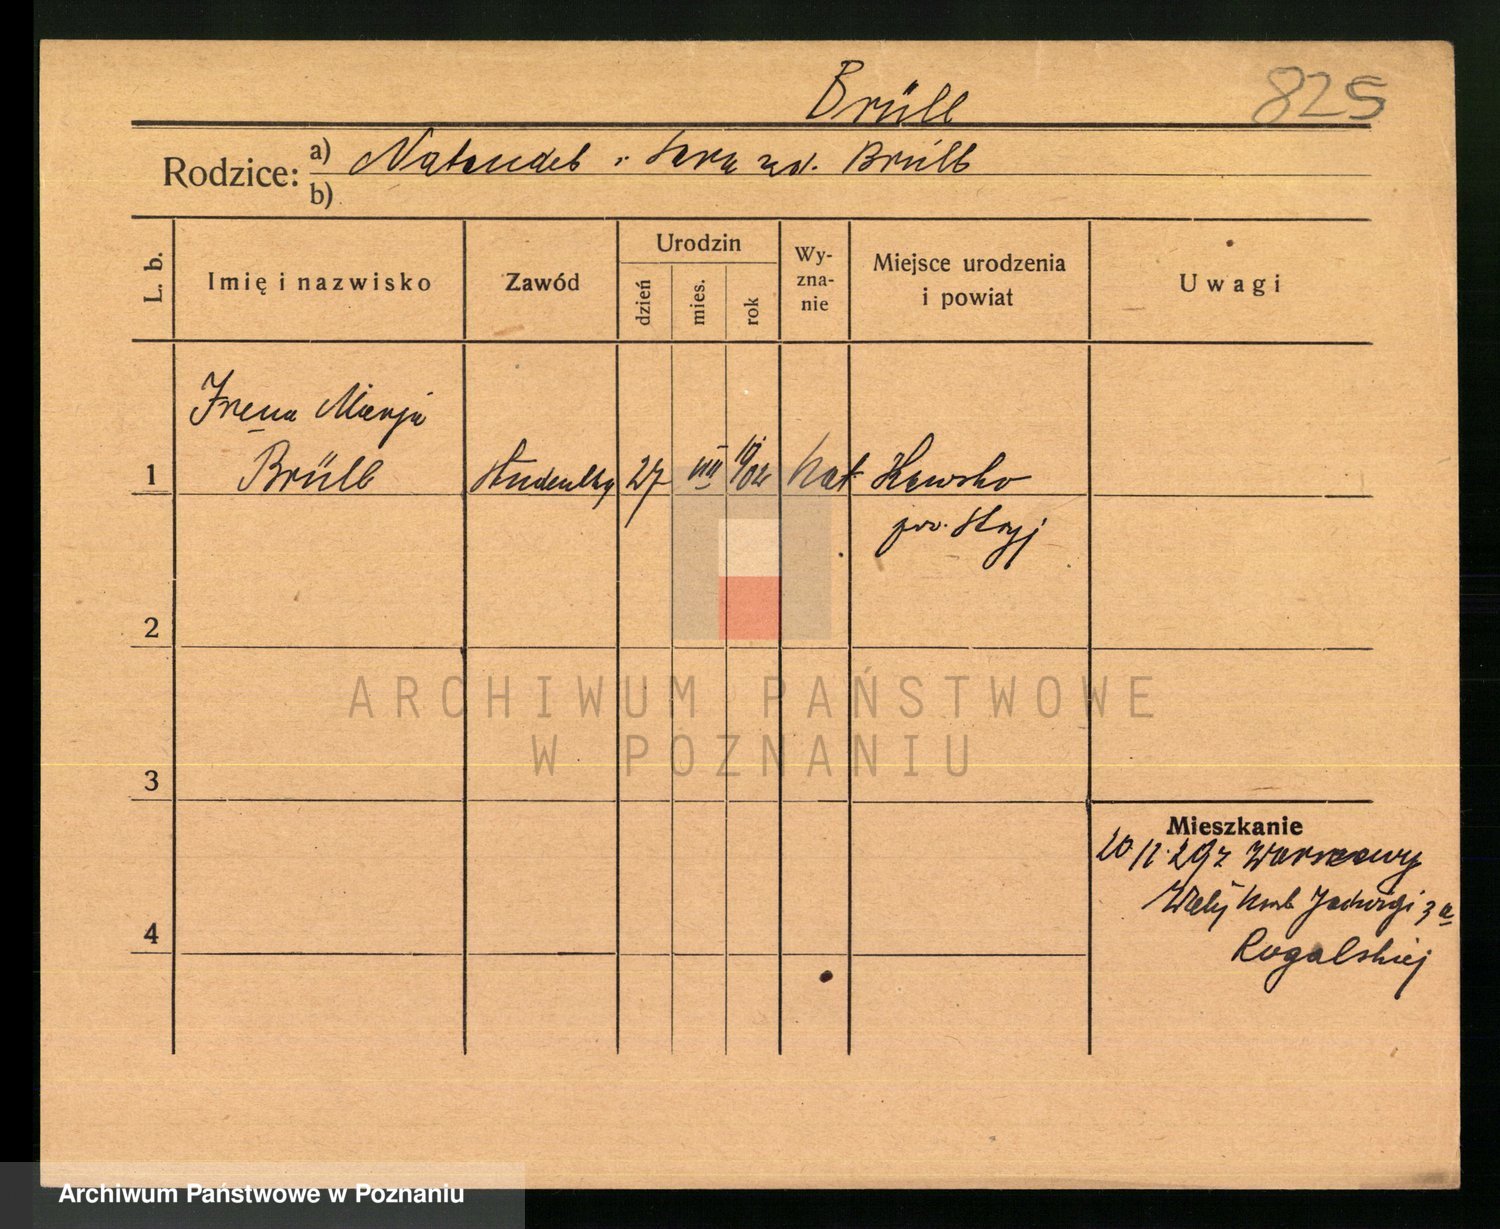 Brüll
825
Rodzice: a) Natan i Sara
b)
L. b.
Imię i nazwisko
Zawód
Urodzin
dzień
mies.
rok
Wy-
zna-
nie
Miejsce urodzenia
i powiat
Uwagi
Irena Marja
1 Brüll Studentka 27 VIII 1902 kat
pow. Stryj
2
3
4
Mieszkanie
z Warszawy
Jadwigi 3a
Rogalskiej
ARCHIWUM PAŃSTWOWE
W POZNANIU
Archiwum Państwowe w Poznaniu